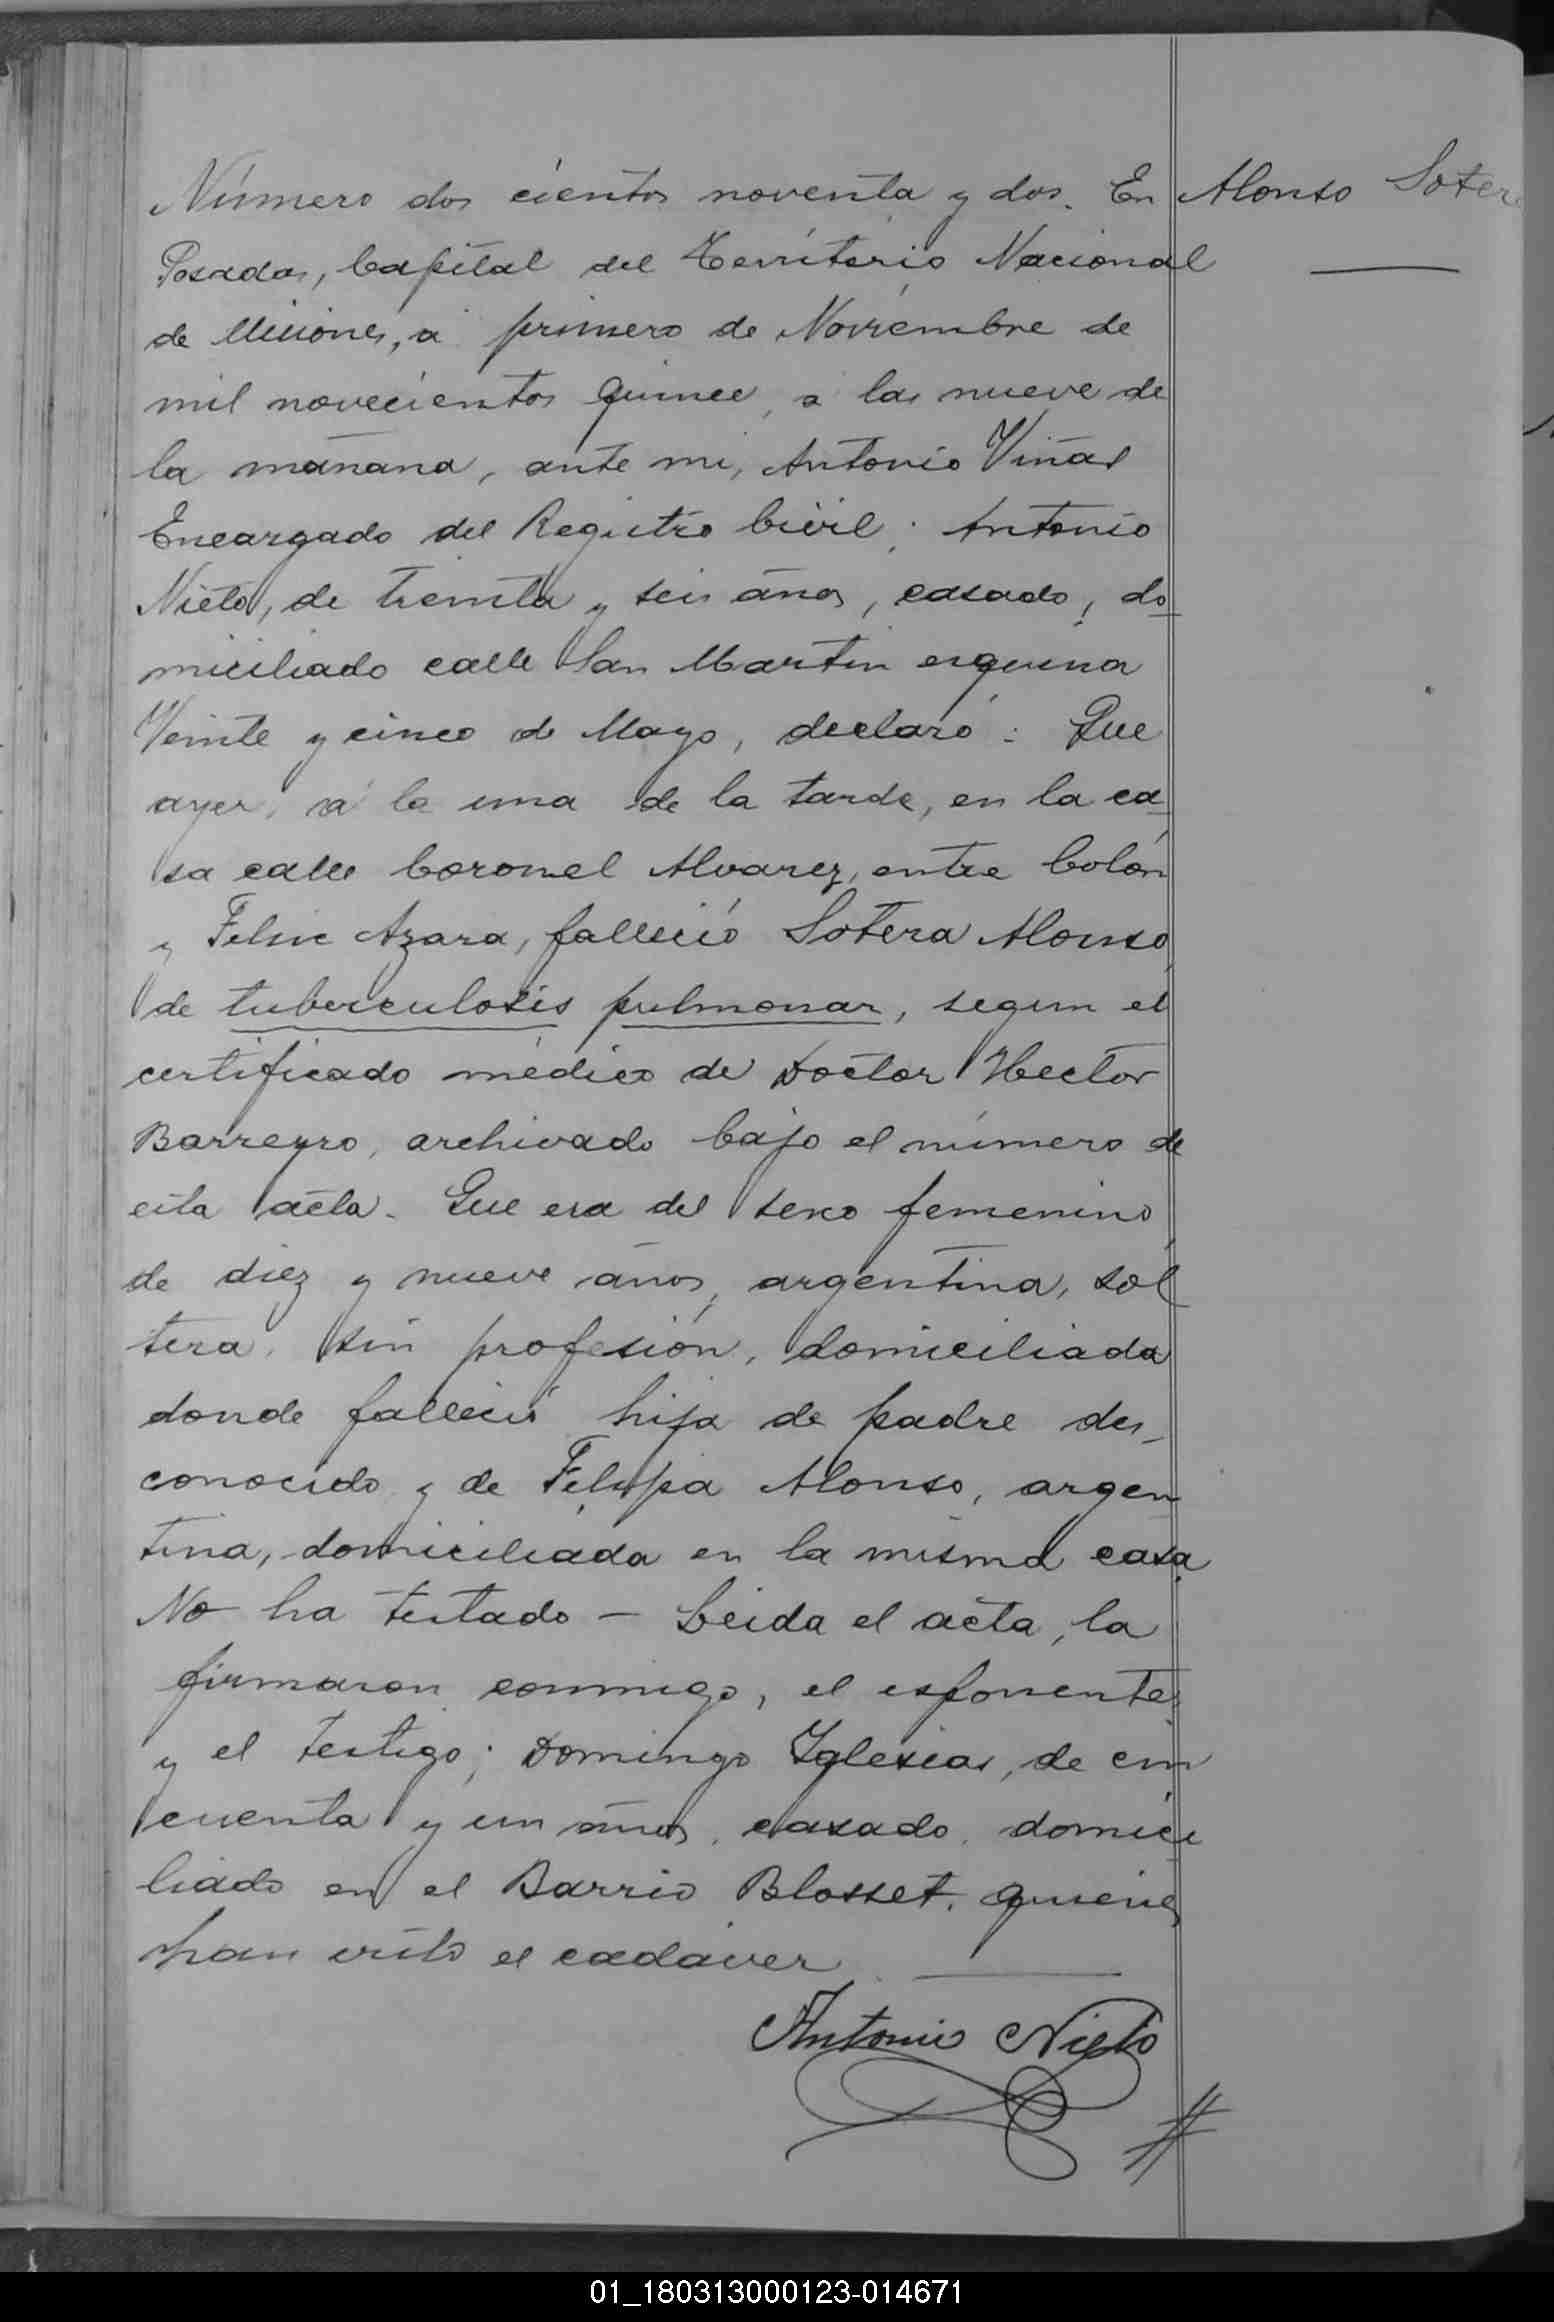 Número dos cientos noventa y dos. En
Alonso Soter
Posadas, Capital del Territorio Nacional
de Misiones, a primero de Noviembre de
mil novecientos quince, a las nueve de
la mañana, ante mi, Antonio Viñas
Encargado del Registro Civil; Antonio
Nieto, de treinta y seis años, casado, do
miciliado calle San Martin esquina
Veinte y cinco de Mayo, declaró: Que
ayer, á la una de la tarde, en la ca
sa calle Coronel Alvarez, entre Colón
y Felix Azara, falleció Sotera Alonso,
de tuberculosis pulmonar, segun el
certificado médico de Doctor Hector
Barreyro, archivado bajo el número de
esta acta. Que era del sexo femenino,
de diez y nueve años, argentina, sol
tera, sin profesión, domiciliada
donde falleció hija de padre des-
conocido y de Felipa Alonso, argen
tina, domiciliada en la misma casa.
No ha testado - Leida el acta, la
firmaron conmigo, el esponente
y el testigo; Domingo Iglesias, de cin
cuenta y un años, casado, domici
liado en el Barrio Blosset, quienes
han visto el cadáver
Antonio Nieto
01_180313000123-014671